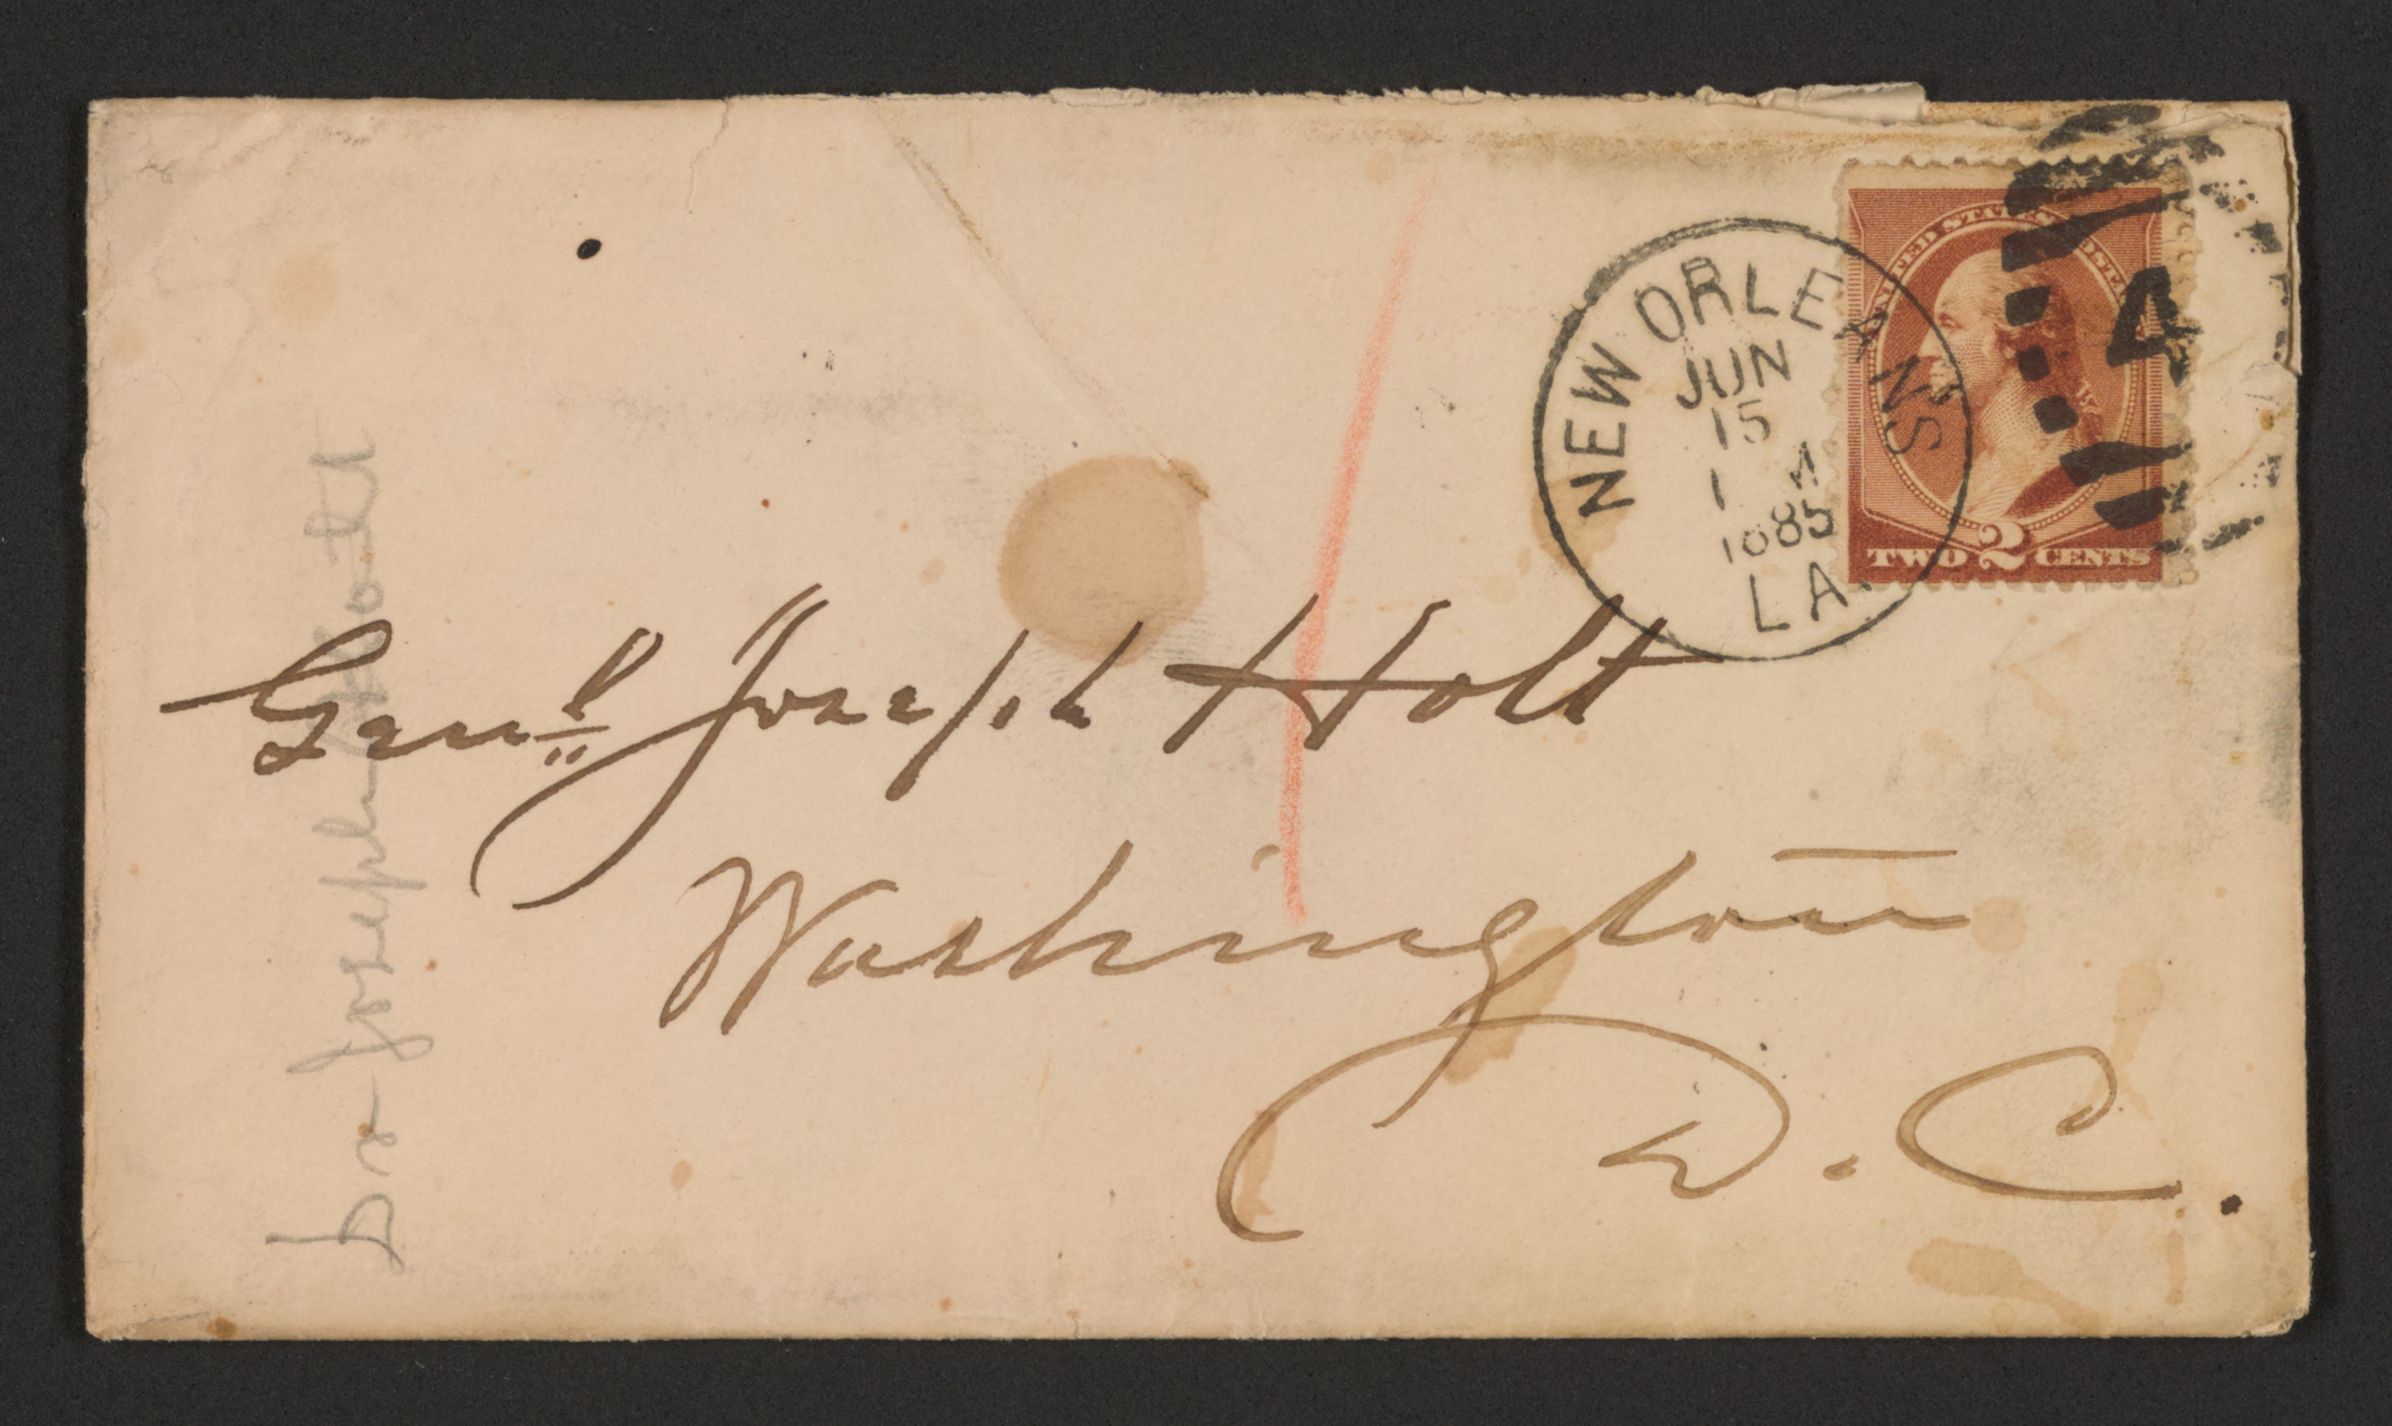 NEW ORLEANS
JUN
15
1 A
1885
LA.
UNITED STATES POST
TWO 2 CENTS
4
Genl Joseph Holt
Washington
D. C.
Dr Joseph Holt